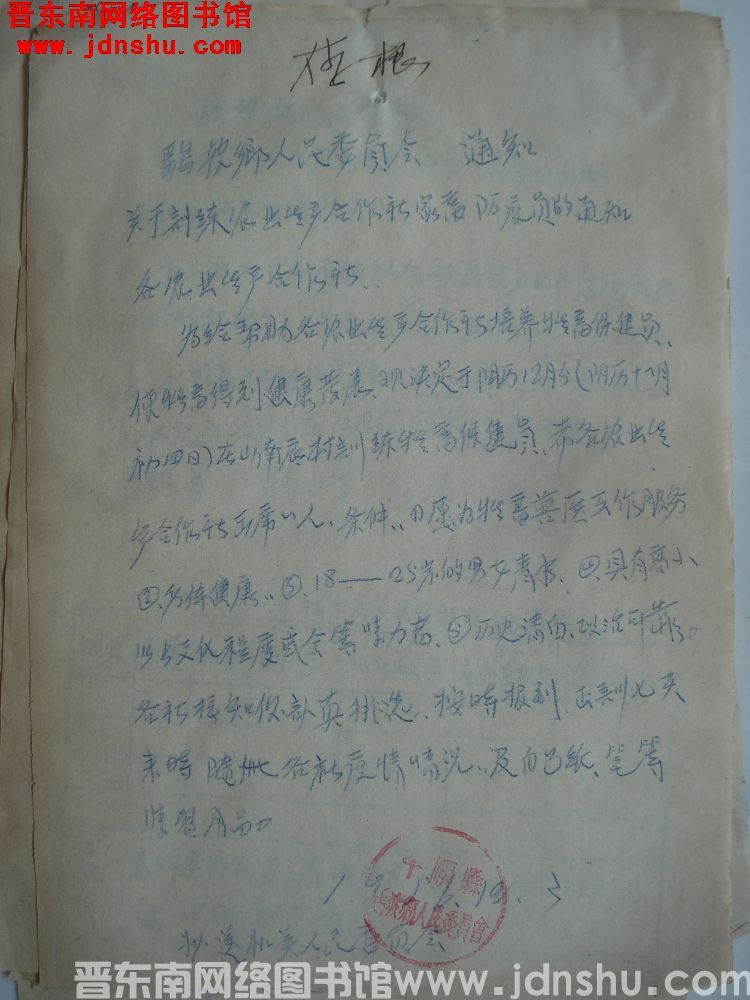 晋东南网络图书馆
www.jdnshu.com
存根
乡人民委员会 通知
关于训练农业生产合作社家畜防疫员的通知
各农业生产合作社、
为给帮助各农业生产合作社培养牲畜保健员、
使牲畜得到健康发展、现决定于阳历12月份(阴历十一月
初四日)在山南底村训练牲畜保健员、希各农业生
产合作社出席1人、条件、①愿为牲畜兽医工作服务
②、身体健康、③、18——25岁的男女青年、四、具有高小
以上文化程度或会写字力者、⑤历史清白、政治可靠。
各社接知后认真挑选、按时报到、正训七天
来时随带各社疫情情况、及自己纸、笔等
学习用品。
12.3
平顺县
乡人民委员会
抄送机关人民委员会
晋东南网络图书馆 www.jdnshu.com